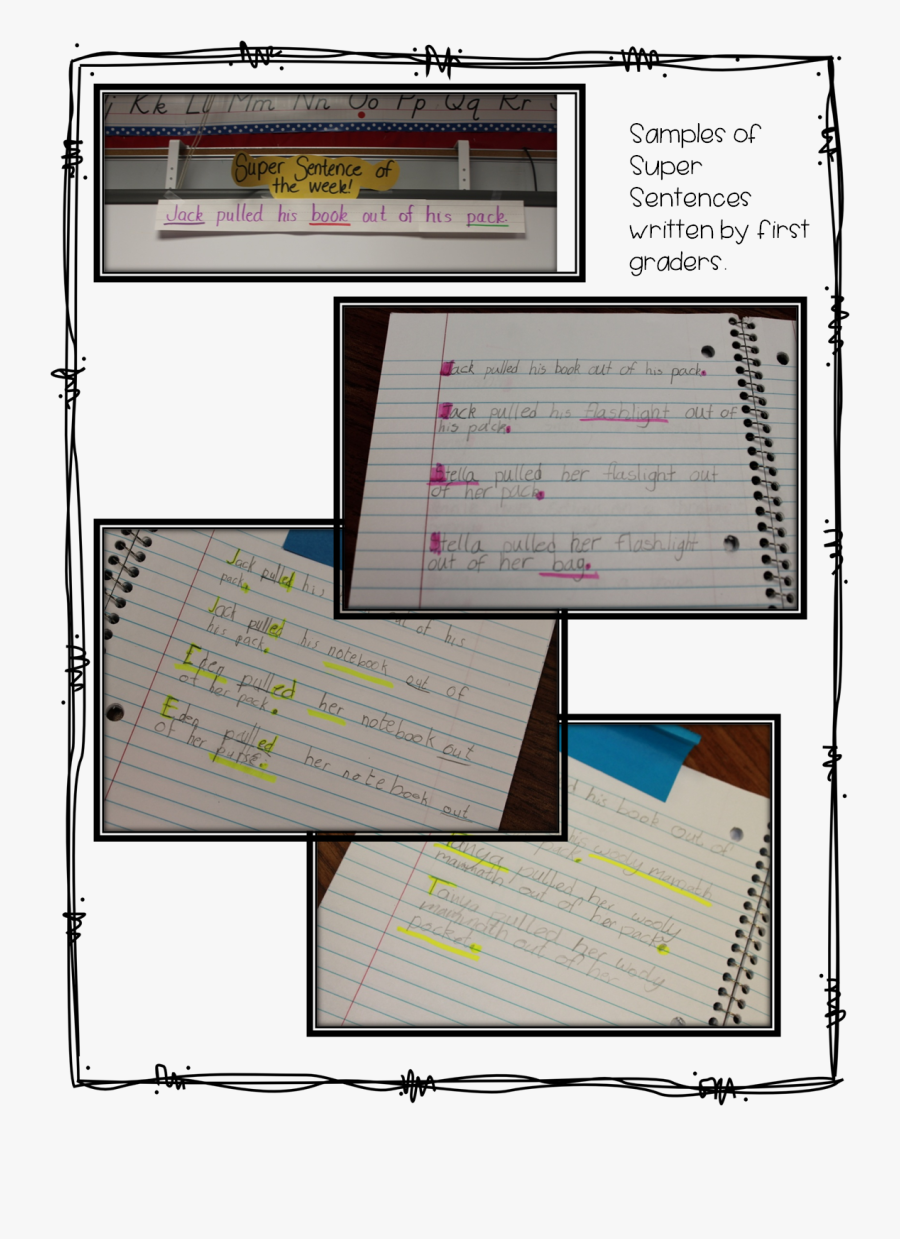 Kk Ll Mm Nn Oo Pp Qq Rr
Super Sentence of
the week!
Jack pulled his book out of his pack.
Samples of
Super
Sentences
written by first
graders.
Jack pulled his book out of his pack.
Jack pulled his flashlight out of
his pack.
Stella pulled her flaslight out
of her pack.
Stella pulled her flashlight
out of her bag.
Jack pulled his out of his
pack.
Jack pulled his notebook out of
his pack.
Eden pulled her notebook out
of her pack.
Eden pulled her notebook out
of her purse.
his book out of
his wooly
pack.
Tanya pulled her wooly
out of her pack.
Tanya pulled her wooly
out of her
pocket.